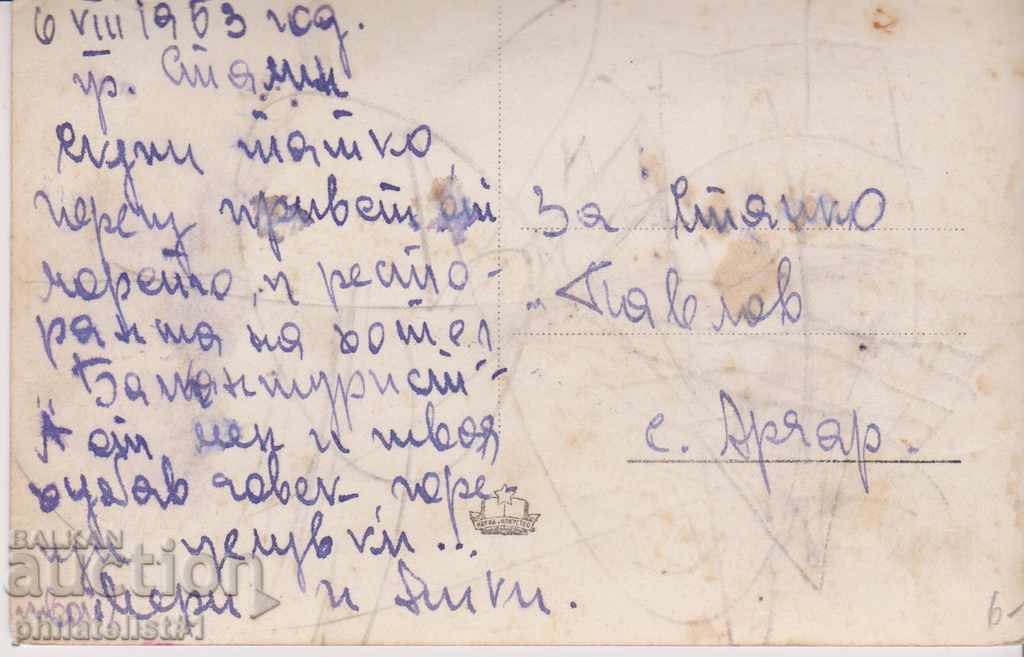 6 VIII 1953 год.
гр. Сталин
татко,
горещ привет от
морето, и ресто-
ранта на хотел
„Балкантурист"-
А от мен и твоя
човек горе-
щи целувки...
Мери и Вики.
За Станко
Павлов
с. Арчар.
НАУКА И ИЗКУСТВО
BALKAN
auction
philatelist41
6-